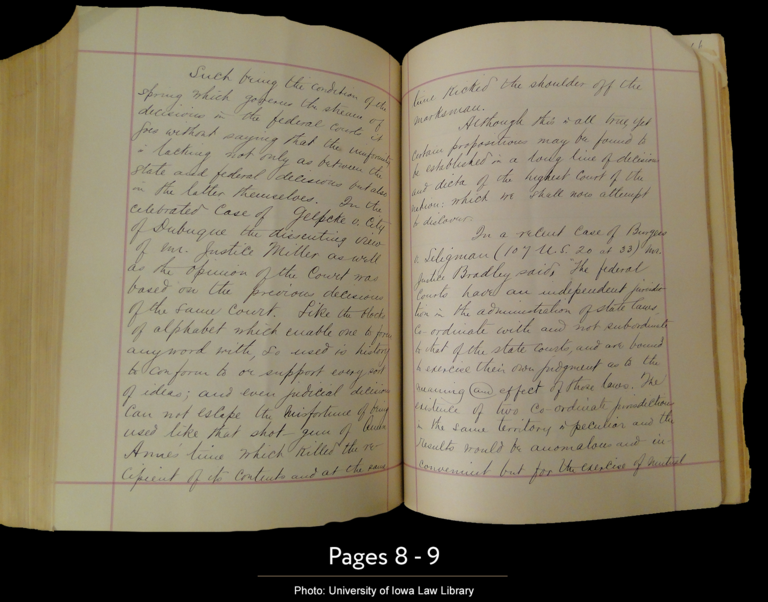 Such being the condition of the
spring which governs the stream of
decisions in the federal courts it
goes without saying that the uniformity
is lacking not only as between the
state and federal decisions but also
in the latter themselves. In the
celebrated case of Gelpcke v. City
of Dubuque the dissenting view
of Mr. Justice Miller as well
as the opinion of the Court was
based on the previous decisions
of the same court. Like the blocks
of alphabet which enable one to form
any word with, so used is history
to conform to or support every sort
of ideas; and even judicial decisions
can not escape the misfortune of being
used like that shot-gun of Queen
Annes time which killed the re
cipient of its contents and at the same
time kicked the shoulder off the
marksman.
Although this is all true, yet
certain propositions may be found to
be established in a long line of decisions
and dicta of the highest Court of the
nation: which we shall now attempt
to discover.
In a recent case of Burgess
v. Seligman (107 U.S. 20 at 33) Mr.
Justice Bradley said, "The federal
Courts have an independent jurisdic
tion in the administration of state laws,
co-ordinate with and not subordinate
to that of the state courts, and are bound
to exercise their own judgment as to the
meaning and effect of those laws. The
existence of two co-ordinate jurisdictions
in the same territory is peculiar and the
results would be anomalous and in
convenient but for the exercise of mutual
Pages 8 - 9
Photo: University of Iowa Law Library